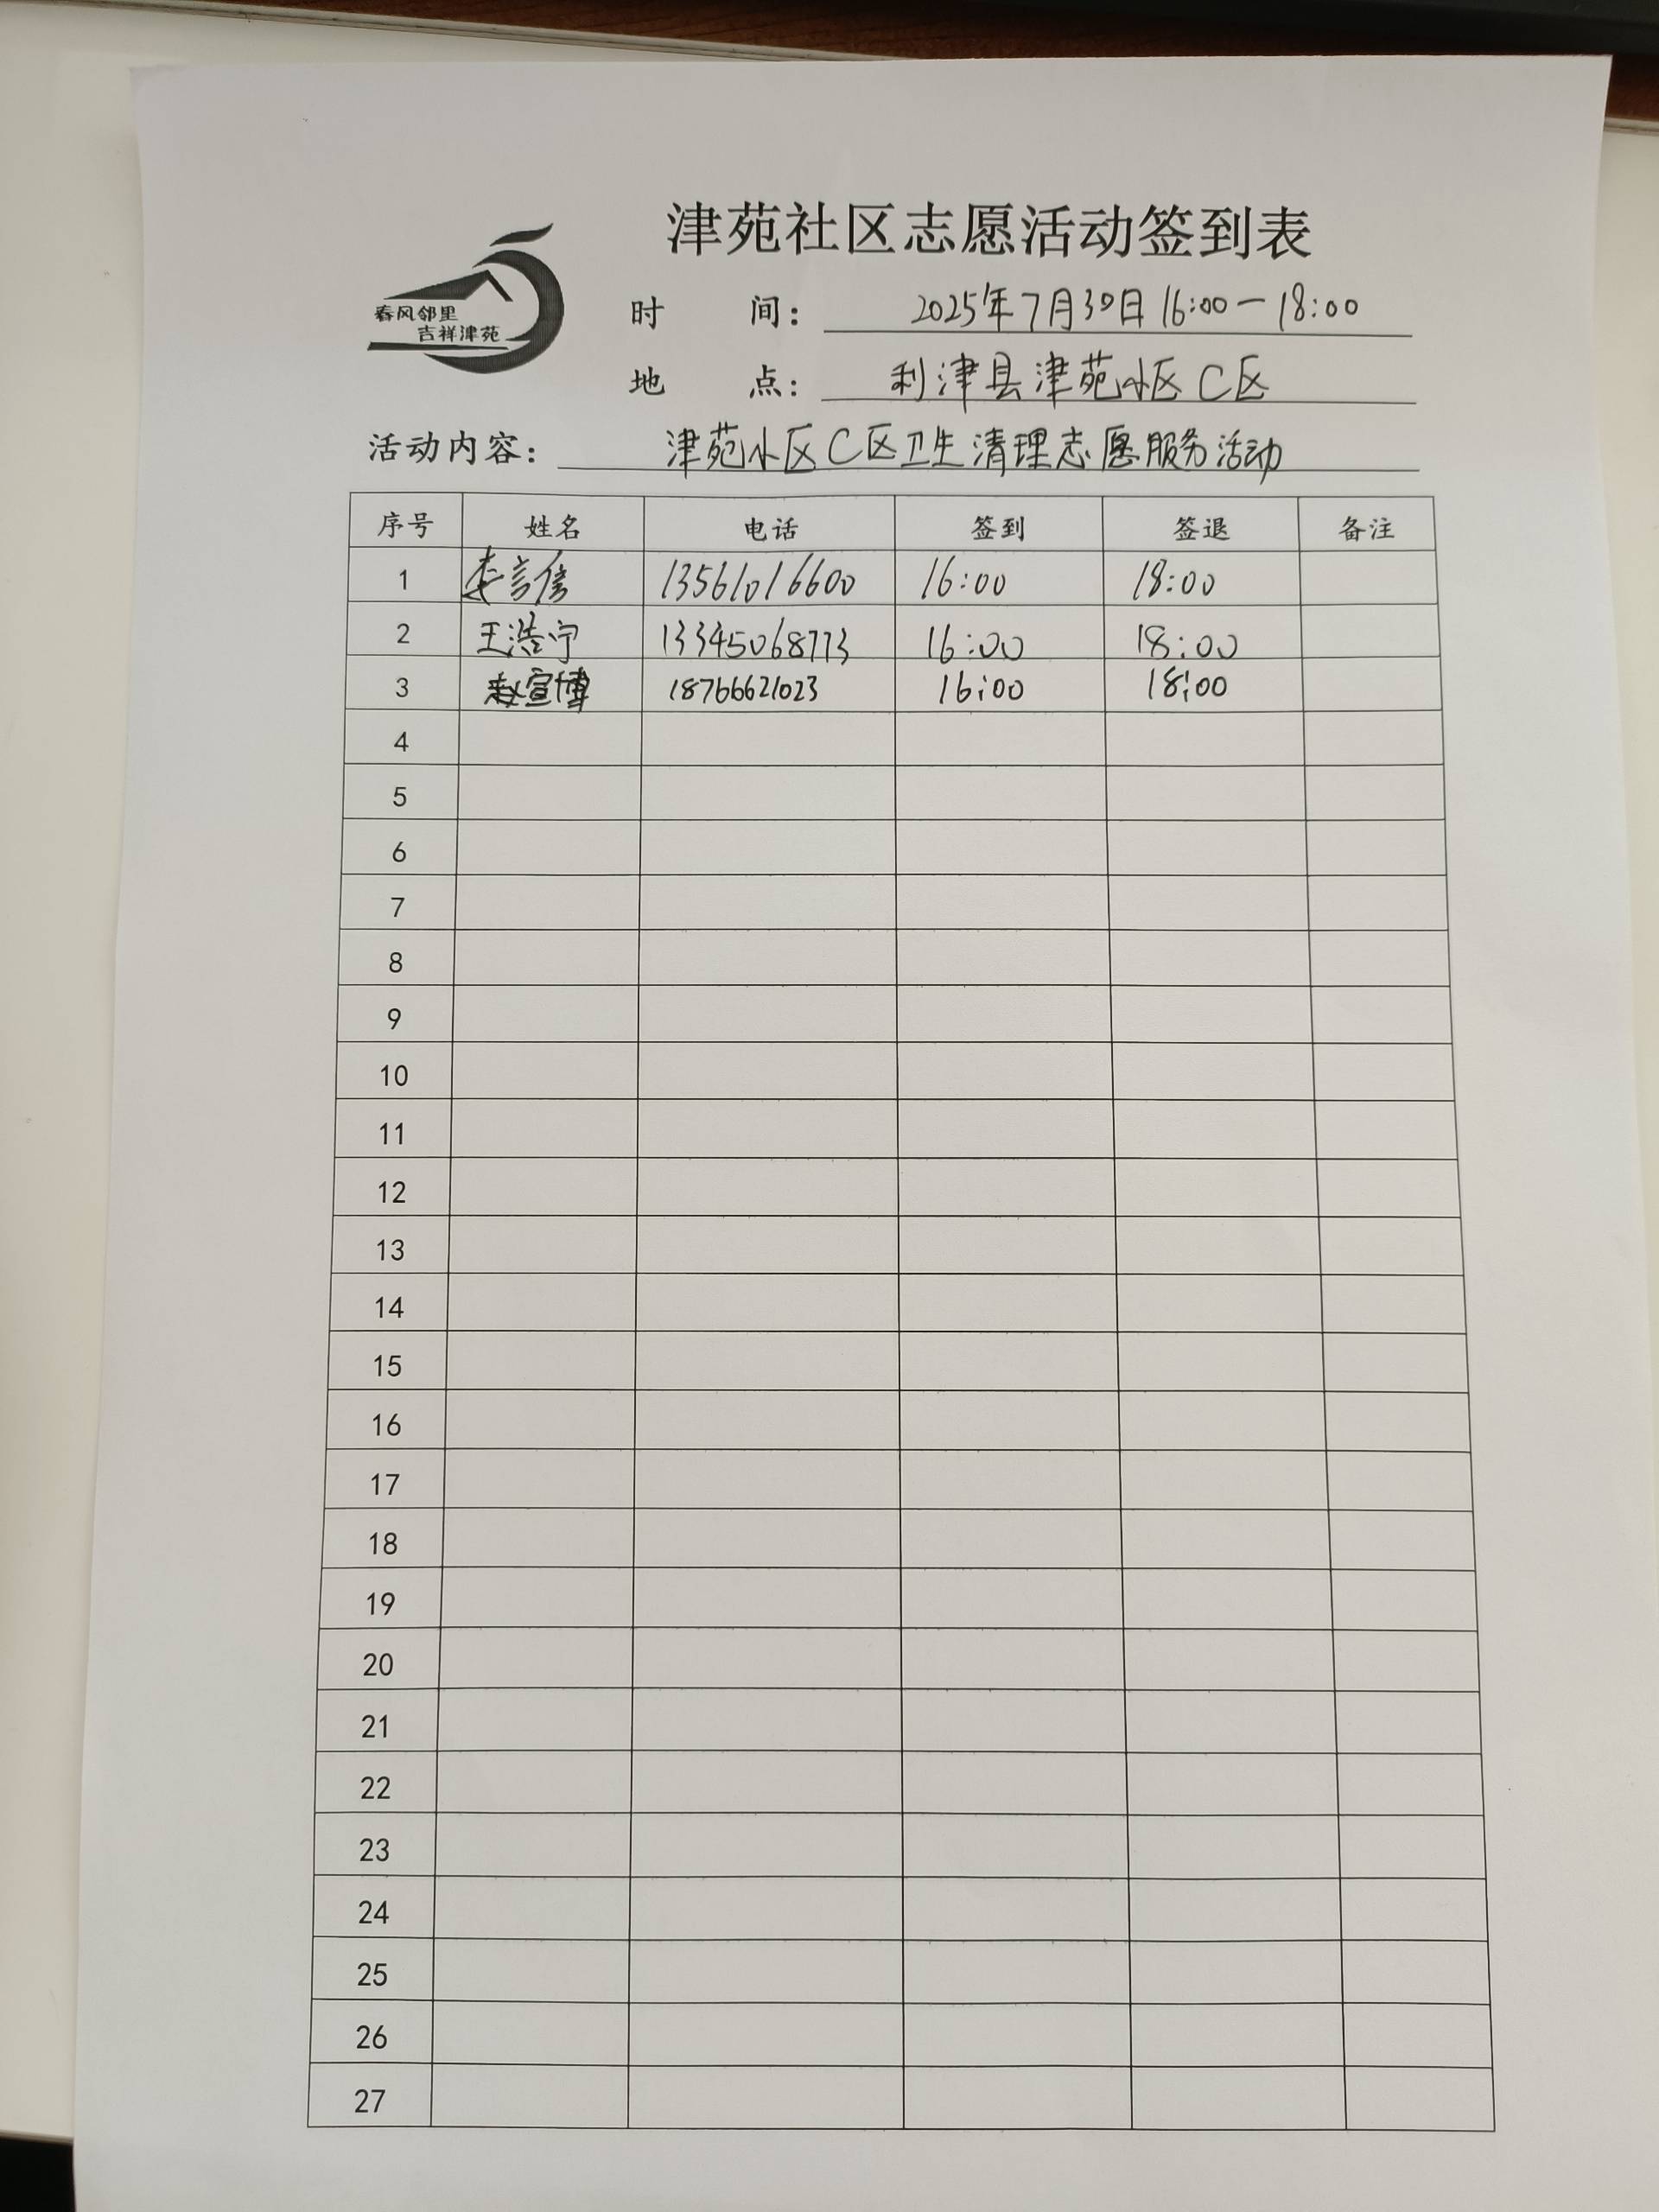 津苑社区志愿活动签到表
春风邻里
吉祥津苑
时 间: 2025年7月30日 16:00-18:00
地 点: 利津县津苑小区C区
活动内容: 津苑小区C区卫生清理志愿服务活动
序号 姓名 电话 签到 签退 备注
1 李言信 13561016600 16:00 18:00
2 王浩宁 13345068773 16:00 18:00
3 赵宣博 18766621023 16:00 18:00
4
5
6
7
8
9
10
11
12
13
14
15
16
17
18
19
20
21
22
23
24
25
26
27